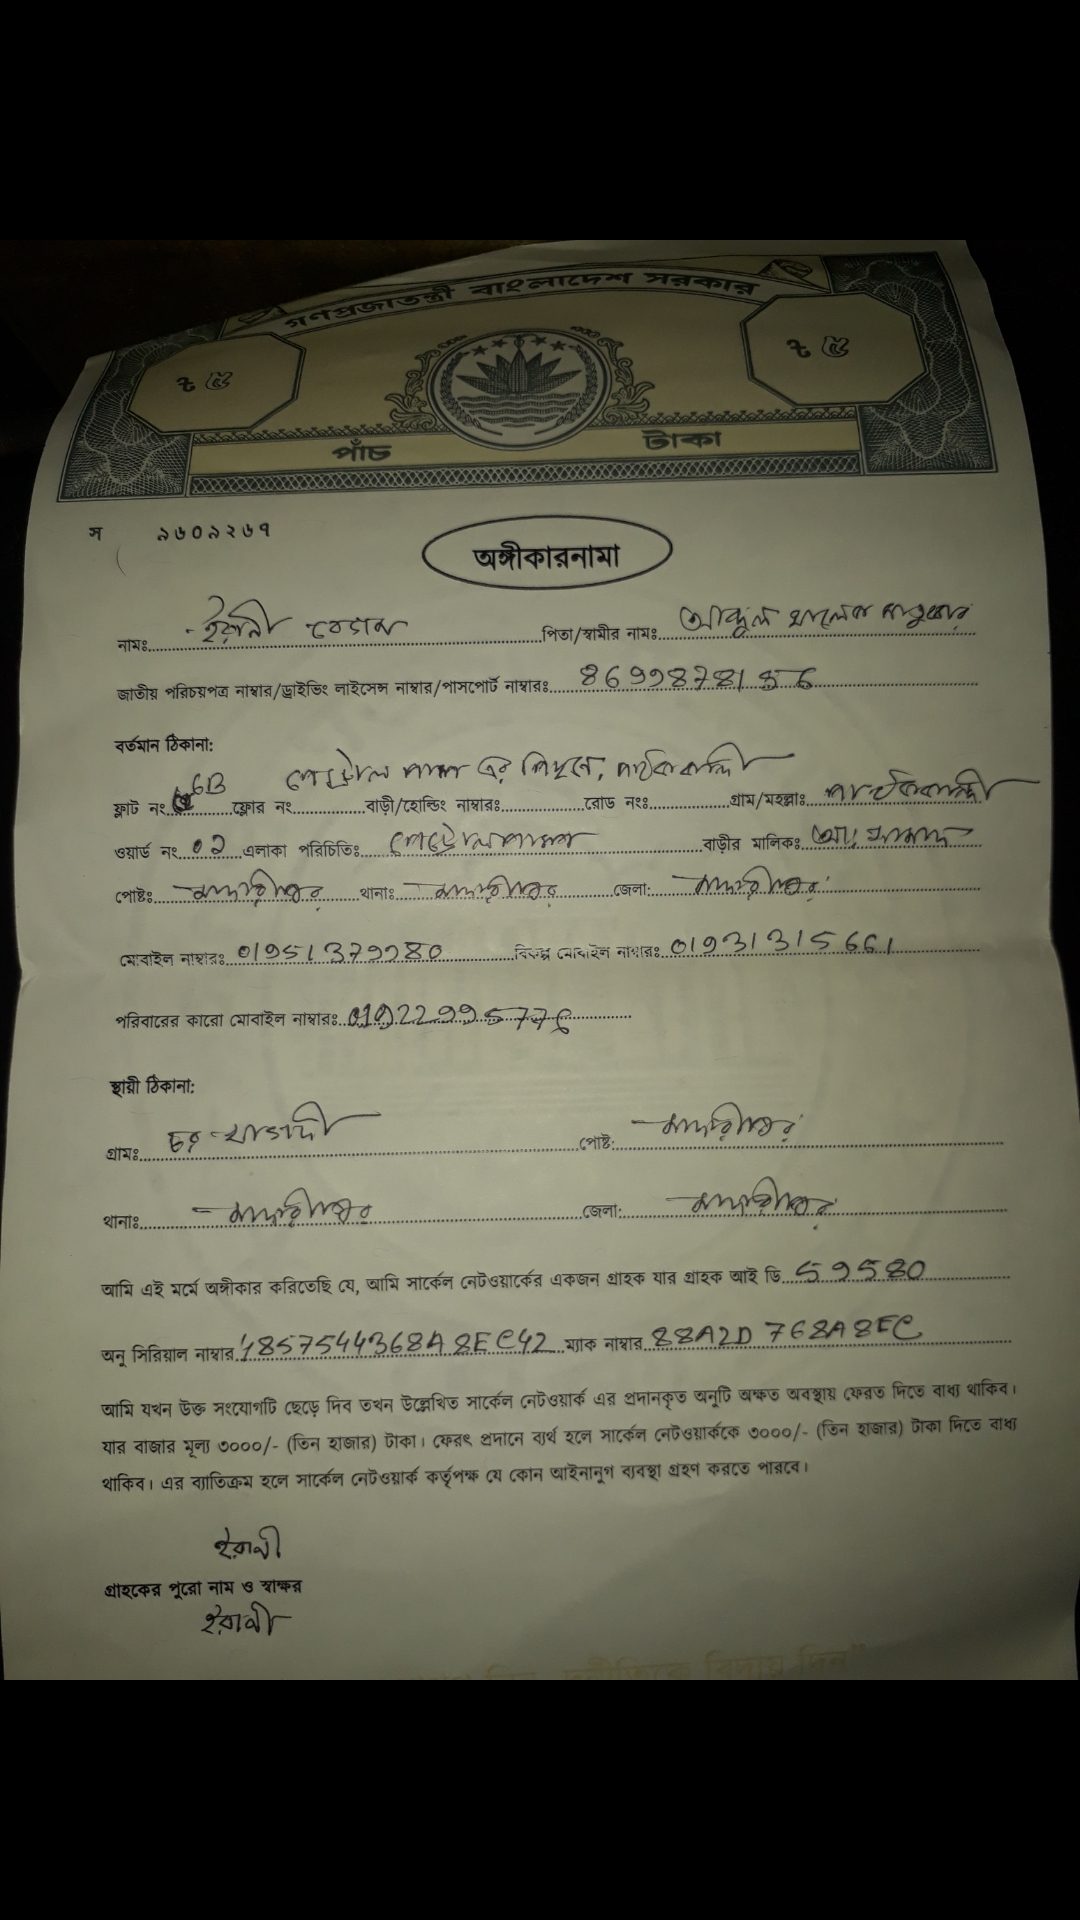 গণপ্রজাতন্ত্রী বাংলাদেশ সরকার
৳ ৫ ৳ ৫
পাঁচ টাকা
স ৯৬০৯২৬৭
অঙ্গীকারনামা
নামঃ ইরানী বেগম পিতা/স্বামীর নামঃ আব্দুল খালেক
জাতীয় পরিচয়পত্র নাম্বার/ড্রাইভিং লাইসেন্স নাম্বার/পাসপোর্ট নাম্বারঃ
বর্তমান ঠিকানা:
পেট্রোল পাম্প এর পিছনে, পাঠককান্দী
ফ্লাট নং 6B ফ্লোর নং বাড়ী/হোল্ডিং নাম্বারঃ রোড নংঃ গ্রাম/মহল্লাঃ পাঠককান্দী
ওয়ার্ড নং ০২ এলাকা পরিচিতিঃ পেট্রোলপাম্প বাড়ীর মালিকঃ
পোষ্টঃ মাদারীপুর থানাঃ মাদারীপুর জেলা: মাদারীপুর
মোবাইল নাম্বারঃ 01951379980 বিকল্প মোবাইল নাম্বারঃ 01931315661
পরিবারের কারো মোবাইল নাম্বারঃ
স্থায়ী ঠিকানা:
গ্রামঃ পোষ্ট: মাদারীপুর
থানাঃ মাদারীপুর জেলা: মাদারীপুর
আমি এই মর্মে অঙ্গীকার করিতেছি যে, আমি সার্কেল নেটওয়ার্কের একজন গ্রাহক যার গ্রাহক আই ডি 59580
অনু সিরিয়াল নাম্বার 4857544368A8EC42 ম্যাক নাম্বার 88A2D768A8EC
আমি যখন উক্ত সংযোগটি ছেড়ে দিব তখন উল্লেখিত সার্কেল নেটওয়ার্ক এর প্রদানকৃত অনুটি অক্ষত অবস্থায় ফেরত দিতে বাধ্য থাকিব।
যার বাজার মূল্য ৩০০০/- (তিন হাজার) টাকা। ফেরৎ প্রদানে ব্যর্থ হলে সার্কেল নেটওয়ার্ককে ৩০০০/- (তিন হাজার) টাকা দিতে বাধ্য
থাকিব। এর ব্যাতিক্রম হলে সার্কেল নেটওয়ার্ক কর্তৃপক্ষ যে কোন আইনানুগ ব্যবস্থা গ্রহণ করতে পারবে।
ইরানী
গ্রাহকের পুরো নাম ও স্বাক্ষর
ইরানী
দিন, দুর্নীতিকে বিদায় দিন"